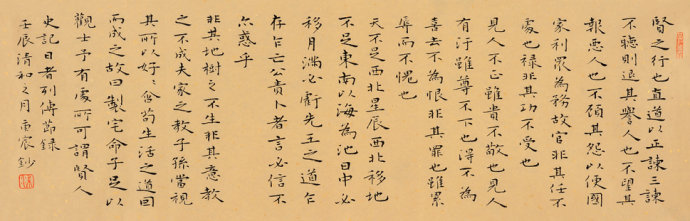 賢之行也直道以正諫諫
不聽則退其譽人也不望其
報惡人也不顧其怨以便國
家利眾為務故官非其任不
處也祿非其功不受也
見人不正雖貴不敬也見人
有汙雖尊不下也得不為
喜去不為恨非其罪也雖累
辱而不愧也
天不足西北星辰西北移地
不足東南以海為池日中必
移月滿必虧先王之道乍
存乍亡公責卜者言必信不
亦惑乎
非其地樹之不生非其意教
之不成夫家之教子孫當視
其所以好〻含苟生活之道因
而成之故曰製宅命子足以
觀士子有處所可謂賢人
史記日者列傳節錄
壬辰清和之月宸鈔